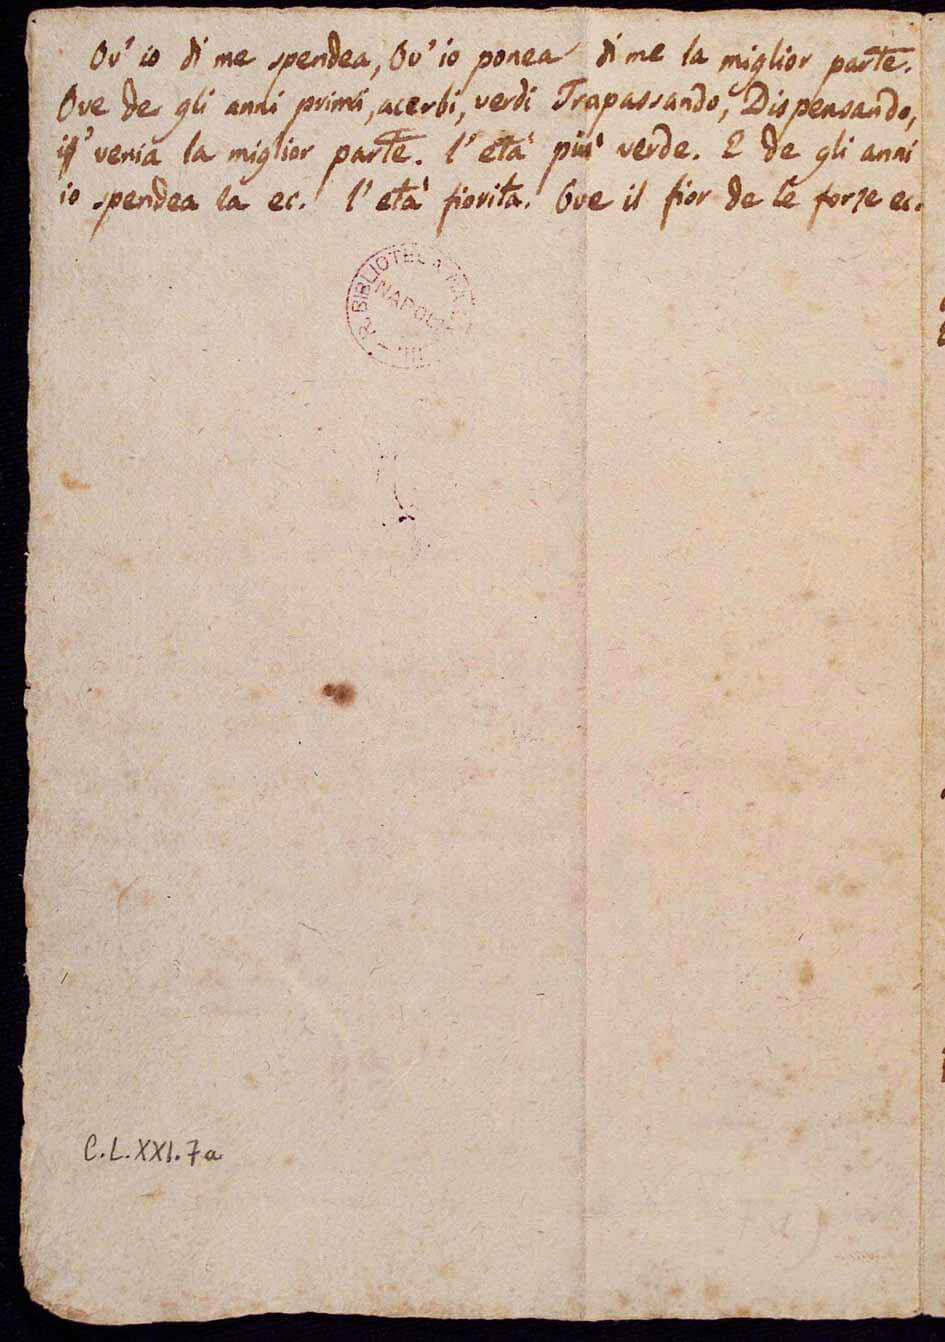 Ov' io di me spendea, Ov' io ponea di me la miglior parte.
Ove de gli anni primi, acerbi, verdi Trapassando, Dispensando,
venia la miglior parte. l' età più verde. E de gli anni
io spendea la ec. l' età fiorita. Ove il fior de le forze ec.
R. BIBLIOTECA
NAPOLI
III.
C.L.XXI.7a